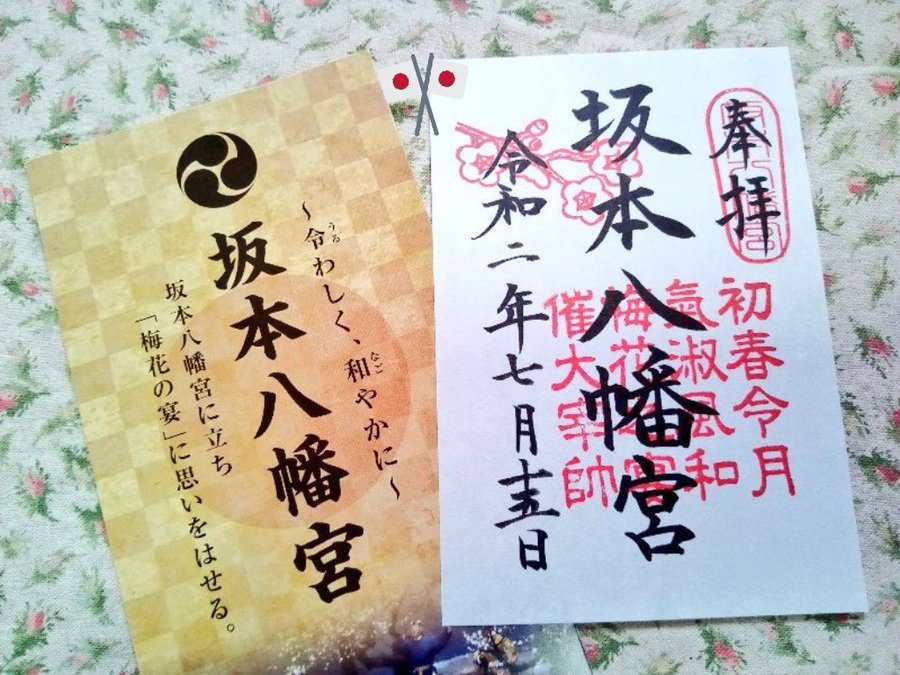 ～令わしく、和やかに～
うる
なご
坂本八幡宮
坂本八幡宮に立ち
「梅花の宴」に思いをはせる。
奉拝
坂本八幡宮
令和二年七月十五日
初春令月
氣淑風和
梅花
催大宰帥